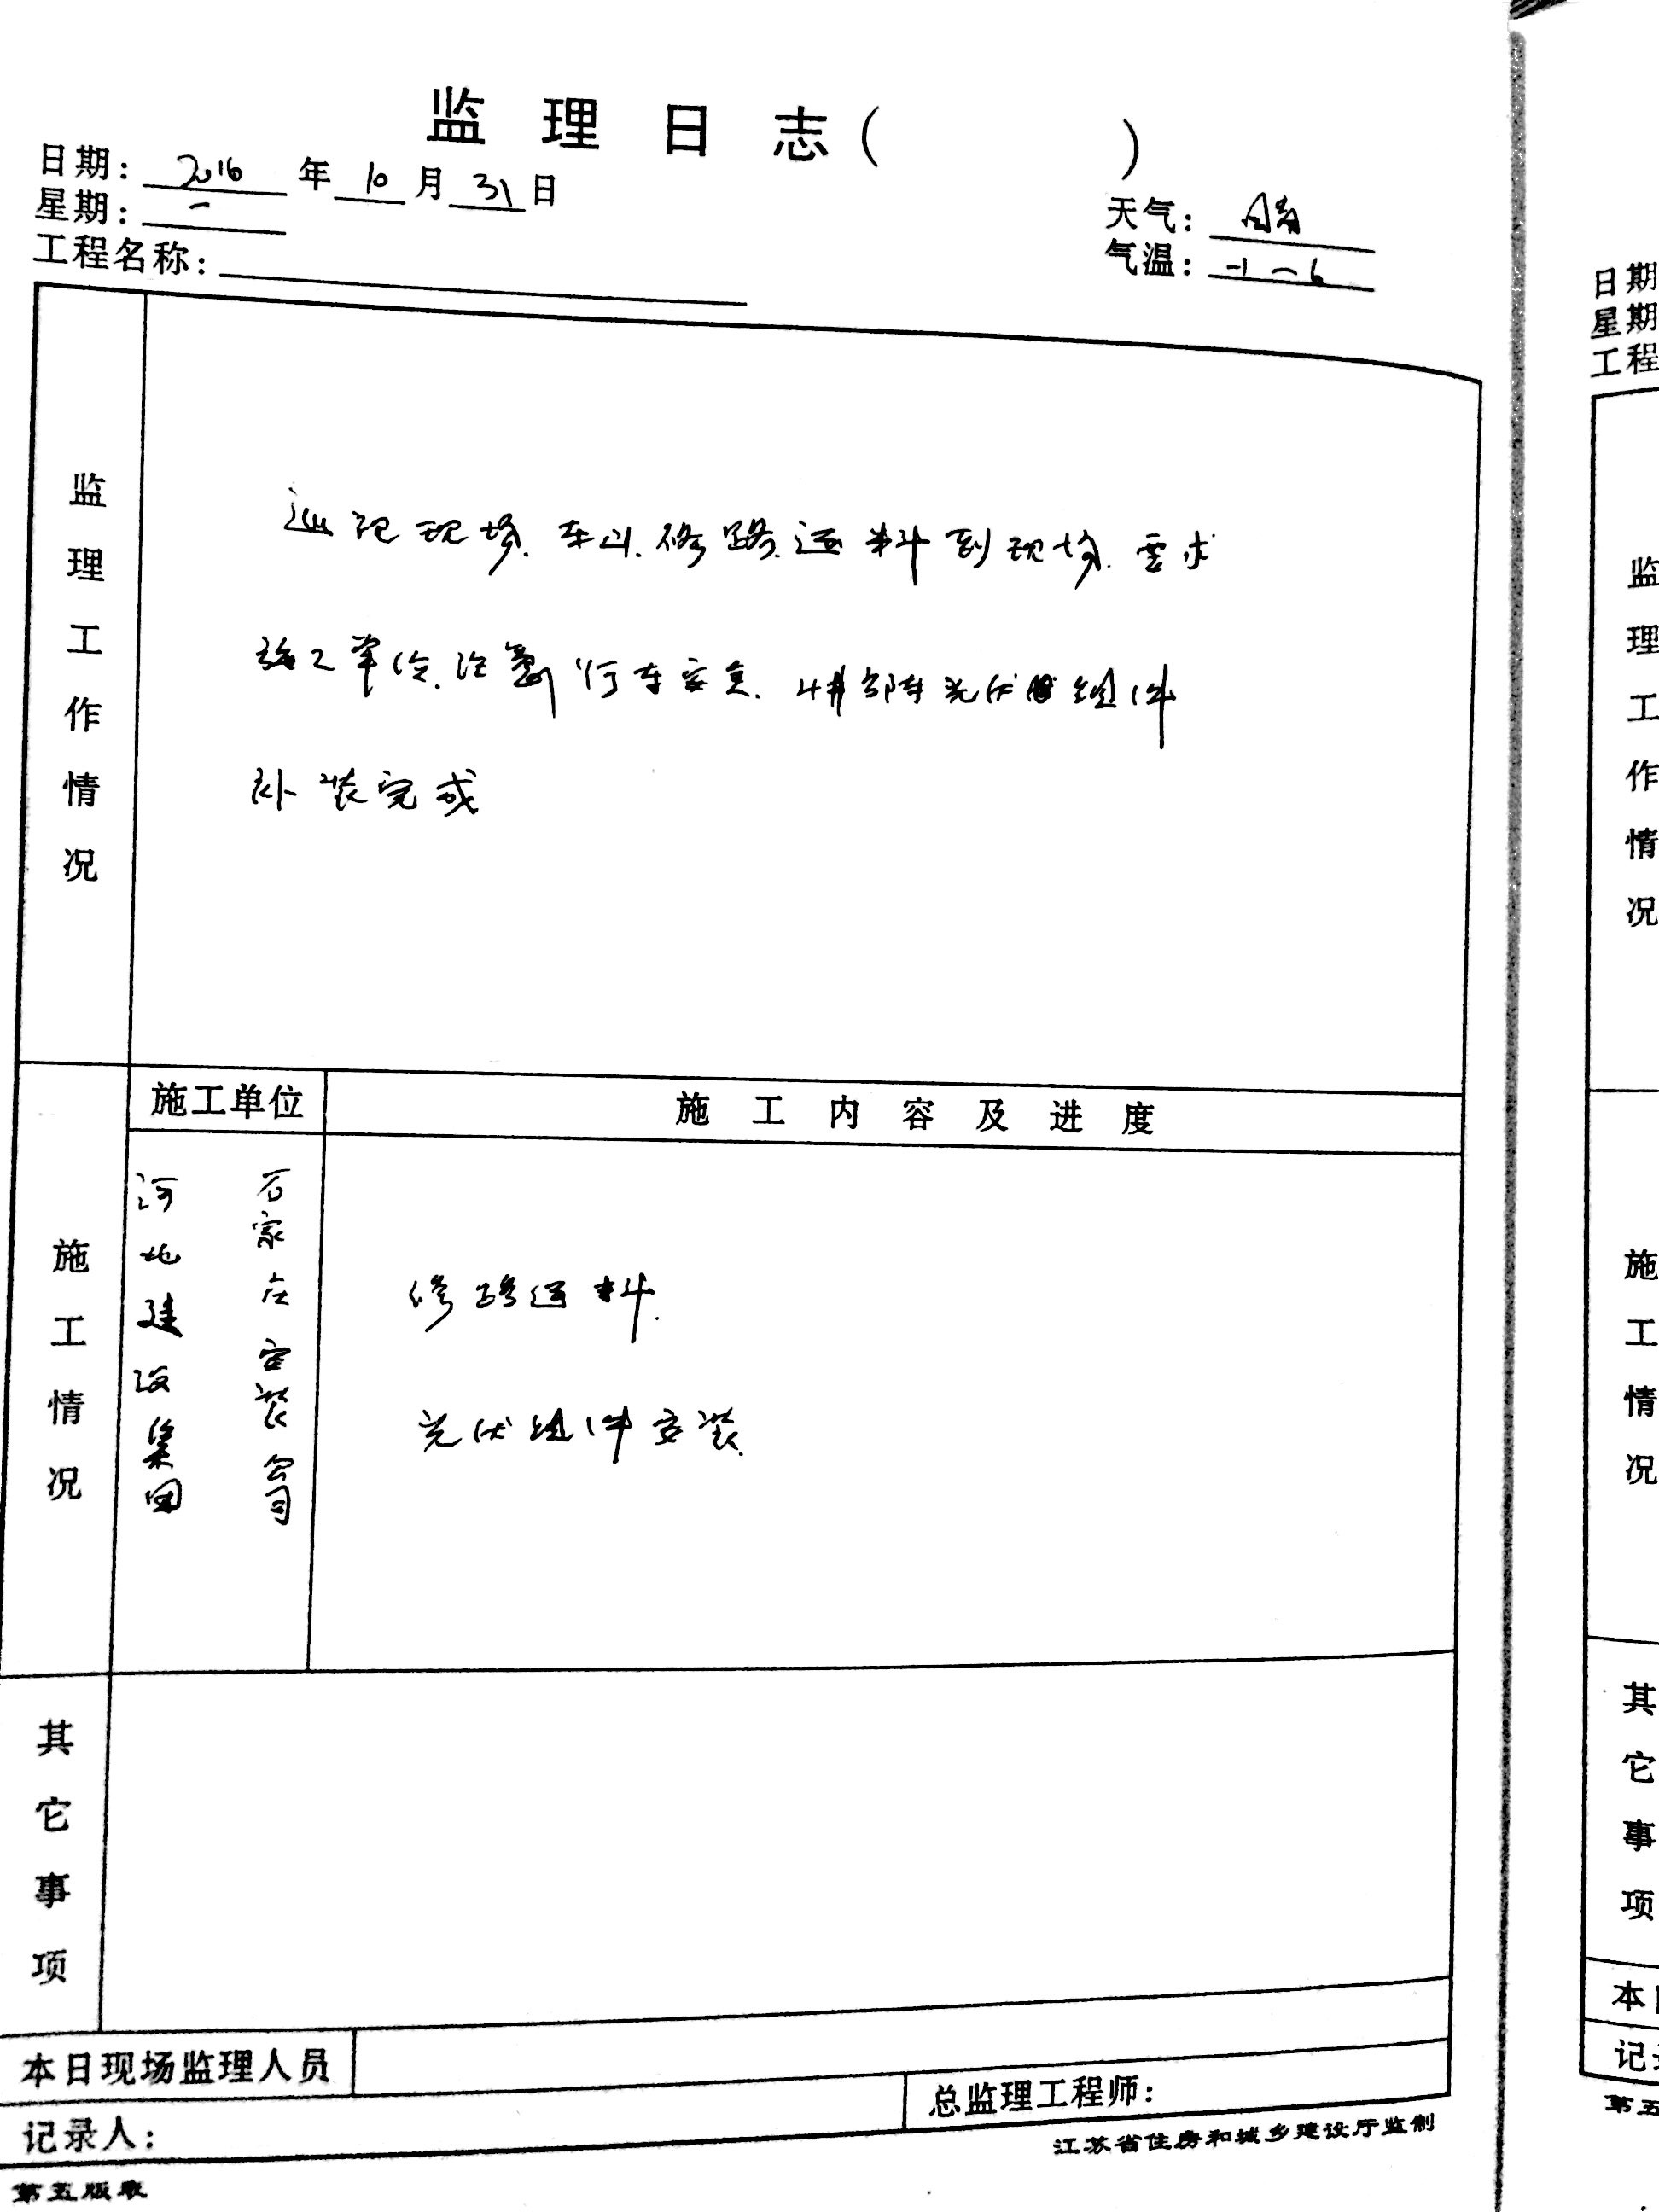 监理日志( )
日期: 2016 年 10 月 31 日
星期: 一
天气: 晴
工程名称:
气温: -1-6
监理工作情况
巡视现场.东山.修路.运料到现场.要求
施工单位.注意行车安全. 方阵光伏组件
补装完成
施工情况
施工单位
施工内容及进度
河北建设集团
石家庄安装公司
修路运料.
光伏组件安装.
其它事项
本日现场监理人员
记录人:
总监理工程师:
第五版表
江苏省住房和城乡建设厅监制
日期
星期
工程
监理工作情况
施工情况
其它事项
本日
记录
第五